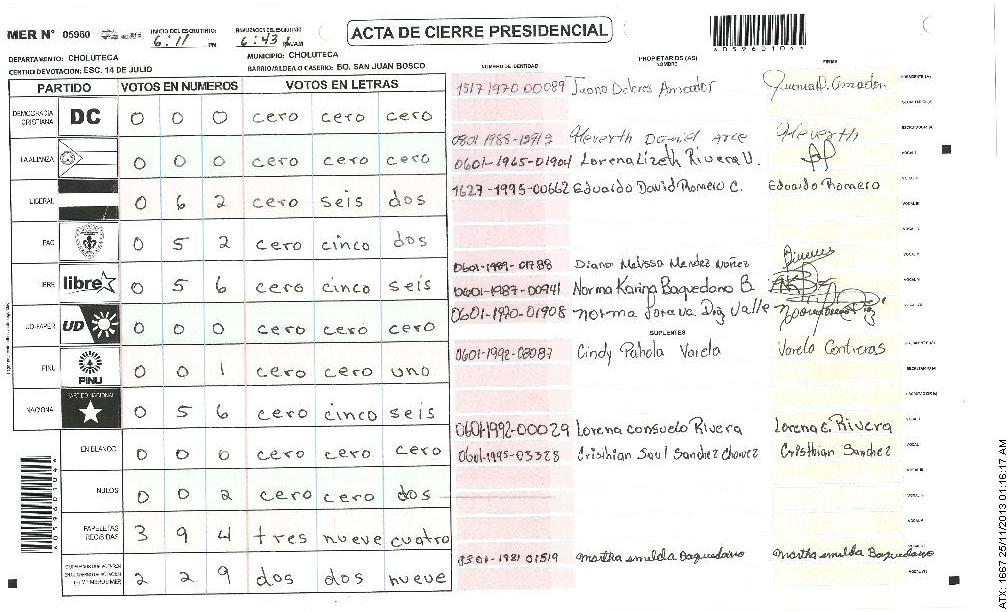 ACTA DE CIERRE PRESIDENCIAL
MER N° 05960
INICIO DEL ESCRUTINIO: 6:11 PM
6:43
A05960104
DEPARTAMENTO: CHOLUTECA
MUNICIPIO: CHOLUTECA
CENTRO DE VOTACION: ESC. 14 DE JULIO
BARRIO/ALDEA O CASERIO: BO. SAN JUAN BOSCO
PARTIDO VOTOS EN NUMEROS VOTOS EN LETRAS
DEMOCRACIA CRISTIANA DC 0 0 0 cero cero cero
LA ALIANZA 0 0 0 cero cero cero
LIBERAL 0 6 2 cero seis dos
PAC 0 5 2 cero cinco dos
LIBRE libre 0 5 6 cero cinco seis
UD-FAPER UD 0 0 0 cero cero cero
PINU PINU 0 0 1 cero cero uno
NACIONAL PARTIDO NACIONAL 0 5 6 cero cinco seis
EN BLANCO 0 0 0 cero cero cero
NULOS 0 0 2 cero cero dos
PAPELETAS RECIBIDAS 3 9 4 tres nueve cuatro
2 2 9 dos dos nueve
A05960104
NUMERO DE IDENTIDAD PROPIETARIOS (AS) NOMBRE FIRMA
1517 1970 00089 Juana Dolores Amador Juana D. Amador PRESIDENTE (A)
SECRETARIO (A)
Heverth Daniel Arce Heverth ESCRUTADOR (A)
0601-1965-01904 Lorena Lizeth Rivera U. VOCAL I
1627-1995-00662 Eduardo David Romero C. Eduardo Romero VOCAL II
VOCAL III
VOCAL IV
0601-1989-01788 Diana Melissa Mendez Nuñez
0601-1987-00941 Norma Karina Baquedano B.
0601-1970-01908 Norma
SUPLENTES
0601-1992-03087 Cindy Pahola Varela Varela Contreras
SECRETARIO (A)
ESCRUTADOR (A)
0601-1992-00029 Lorena Consuelo Rivera Lorena C. Rivera VOCAL I
0601-1995-03328 Cristhian Saul Sanchez Chavez Cristhian Sanchez
VOCAL III
VOCAL IV
VOCAL V
1981 01519 Martha Smelda Baquedano Martha Smelda Baquedano
ATX: 1667 25/11/2013 01:16:17 AM